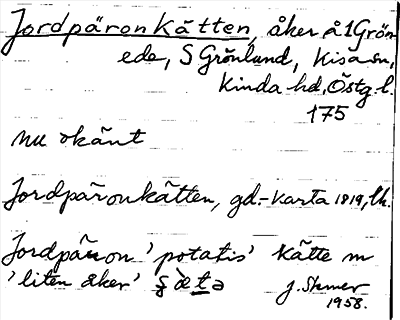 Jordpäronkätten, åker å 1 Grön-
ede, S Grönlund, Kisa sn,
Kinda hd, Östg. l.
175
nu okänt
Jordpäronkätten, gd.-karta 1819, lk.
Jordpäron 'potatis' kätte m
'liten åker'
J. Skmer
1958.